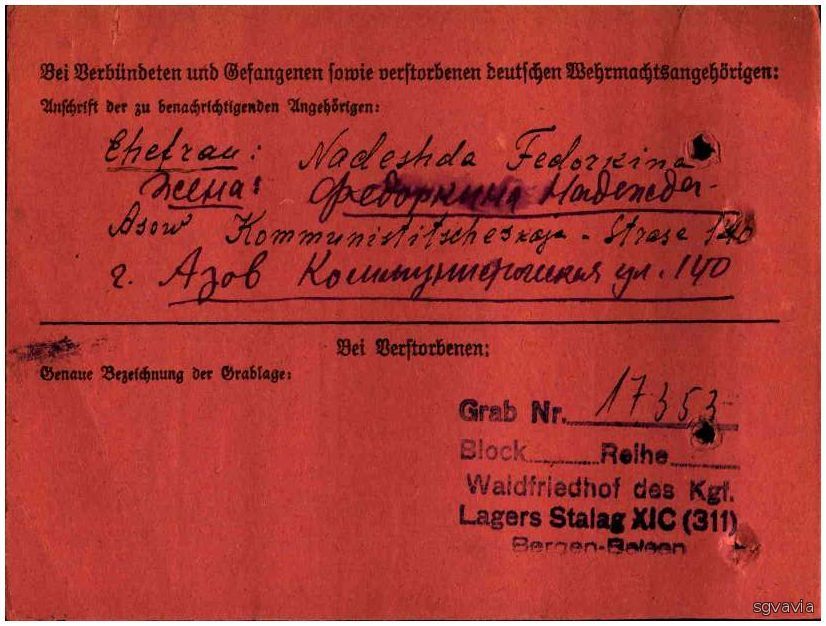 Bei Verbündeten und Gefangenen sowie verstorbenen deutschen Wehrmachtsangehörigen:
Anschrift der zu benachrichtigenden Angehörigen:
Ehefrau: Nadeshda Fedorkina
Жена: Федоркина Надежда
Asow Kommunistitscheskaja - Strase 140
г. Азов Коммунистическая ул. 140
Bei Verstorbenen:
Genaue Bezeichnung der Grablage:
Grab Nr. 17353
Block Reihe
Waldfriedhof des Kgf.
Lagers Stalag XIC (311)
Bergen-Belsen
sgvavia